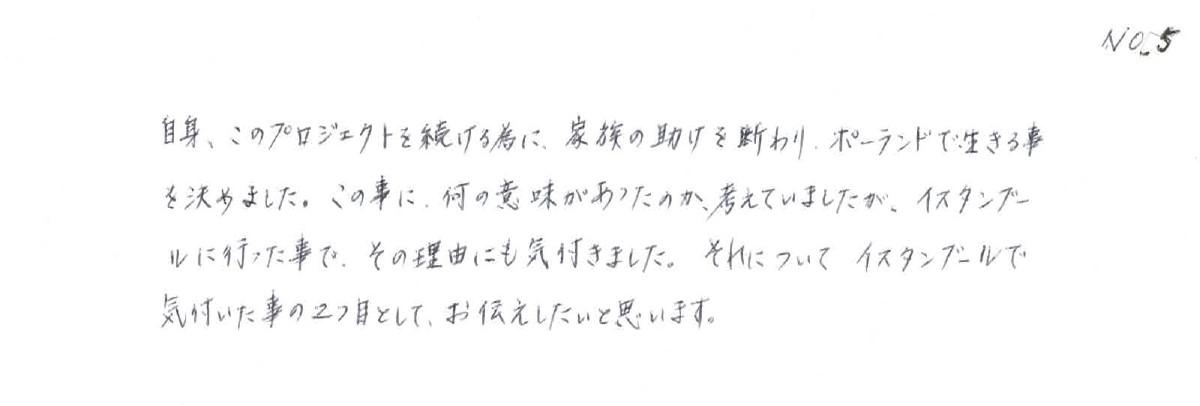 NO.5
自身、このプロジェクトを続ける為に、家族の助けを断わり、ポーランドで生きる事
を決めました。この事に、何の意味があったのか、考えていましたが、イスタンブー
ルに行った事で、その理由にも気付きました。それについてイスタンブールで
気付いた事の2つ目として、お伝えしたいと思います。